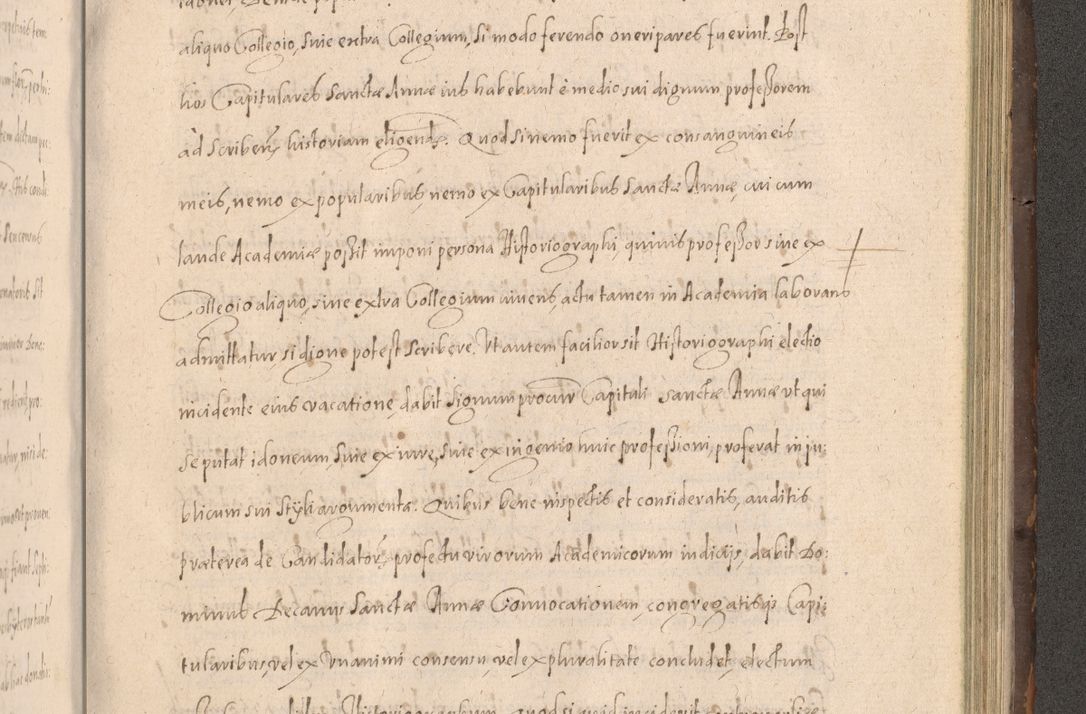 aliquo Collegio, siue extra Collegium, si modo ferendo oneri pares fuerint. Post
hos Capitulares Sanctæ Annæ ius habebunt è medio sui dignum professorem
ad scribend. historiam eligendi. Quod si nemo fuerit ex consanguineis
meis, nemo ex popularibus, nemo ex Capitularibus Sanctæ Annæ, cui cum
laude Academiæ possit imponi persona Historiographi, quiuis professor siue ex
Collegio aliquo, siue extra Collegium uiuens, actu tamen in Academia laborans
admittatur, si digne potest scribere. Vt autem facilior sit Historiographi electio
incidente eius vacatione, dabit signum procur Capituli Sanctæ Annæ vt qui
se putat idoneum, siue ex iure, siue ex ingenio huic professioni, proferat in pu:
blicum sui styli argumenta. Quibus bene inspectis et consideratis, auditis
præterea de Candidator. profectu virorum Academicorum indicijs, dabit Do:
minus Decanus Sanctæ Annæ Conuocationem, congregatisq; Capi:
tularibus, vel ex vnanimi consensu, vel ex pluralitate concludet, electum